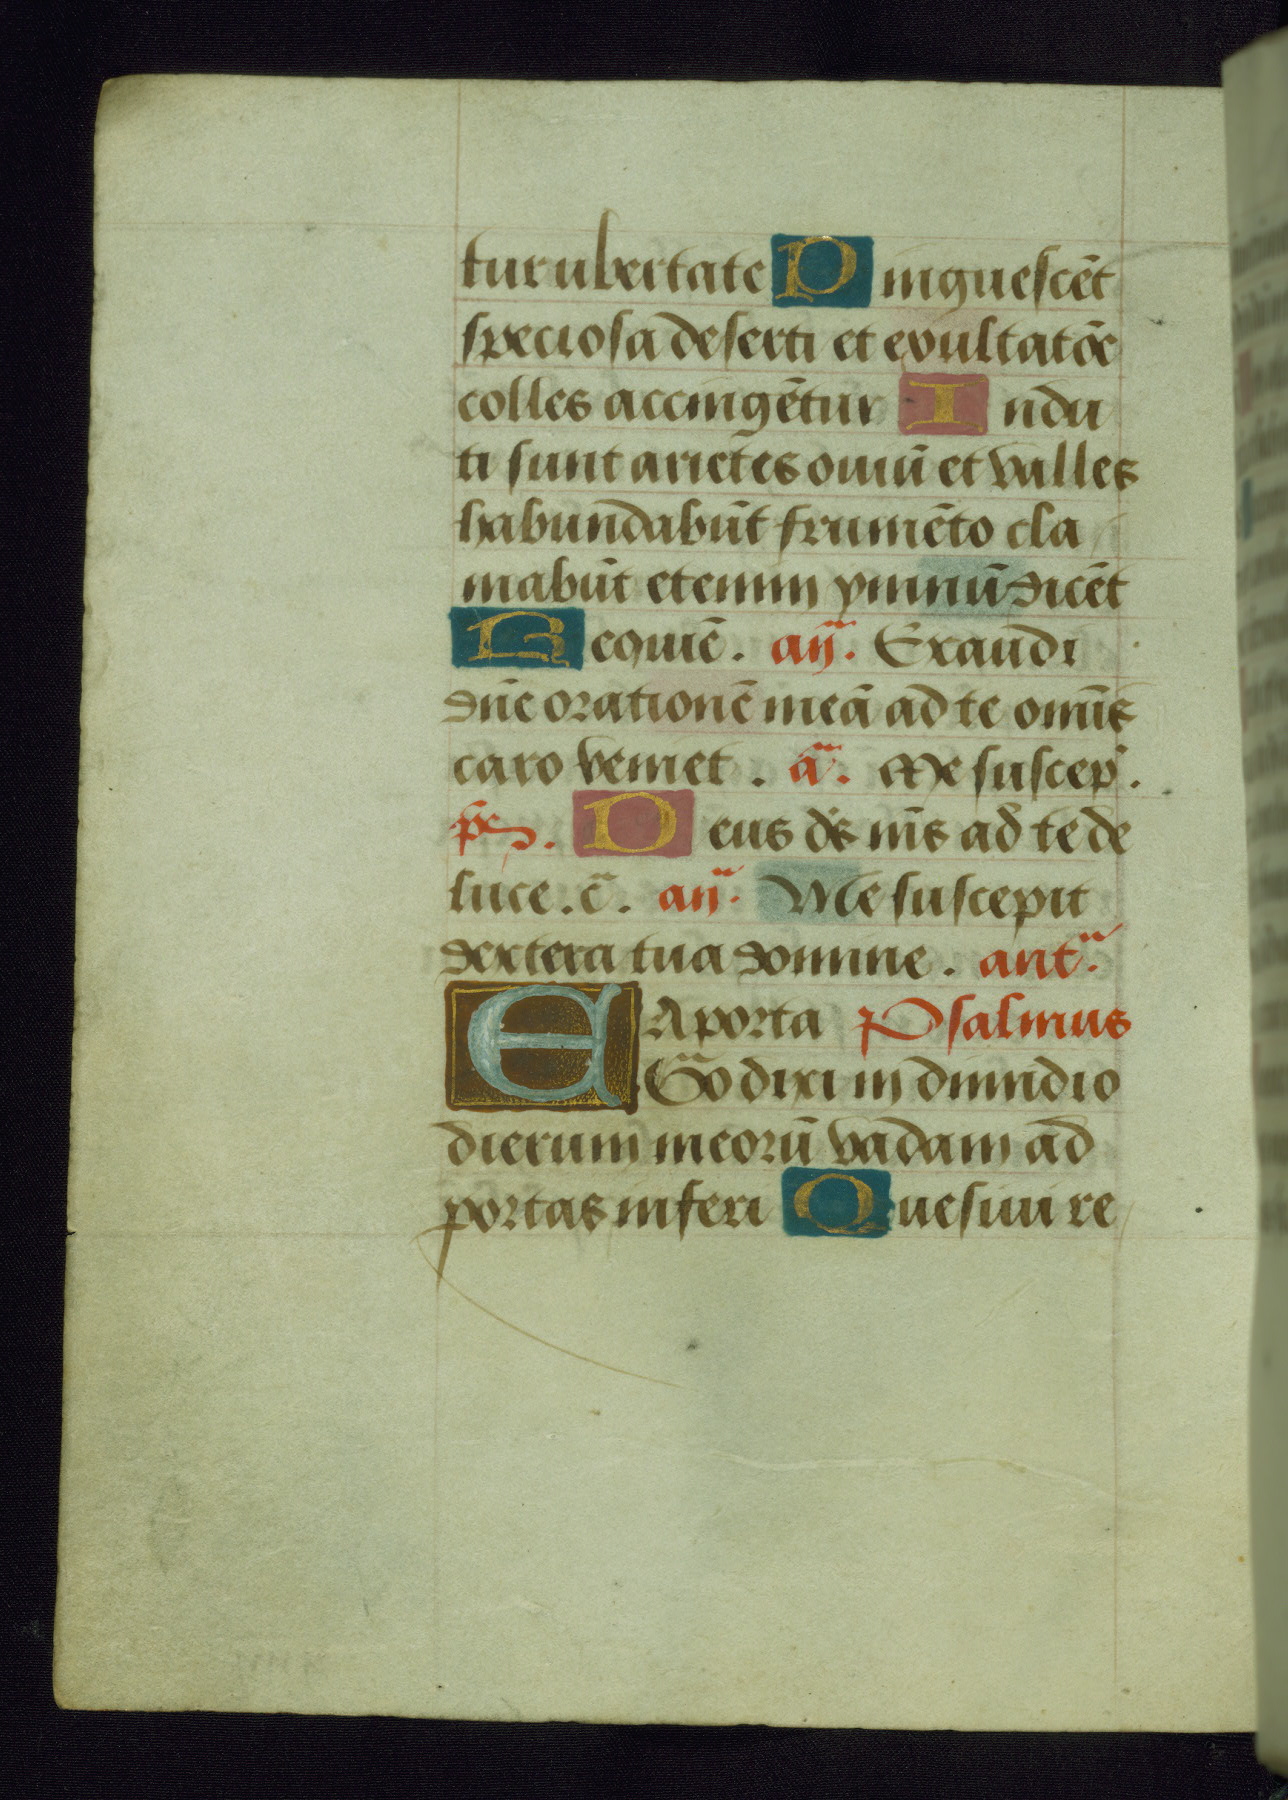 tur ubertate Pinguescēt
speciosa deserti et exultatōe
colles accingētur Indu
ti sunt arietes ouiū et valles
habundabūt frumēto cla
mabūt etenim ymnū dicēt
Requiē. añ. Exaudi
dñe orationē meā ad te omīs
caro veniet. ā. Me suscep̄.
ps. Deus ds ms ad te de
luce. c̄. añ. Me suscepit
dextera tua domine. ant.
A porta Psalmus
EGo dixi in dimidio
dierum meorū vadam ad
portas inferi Quesiui re